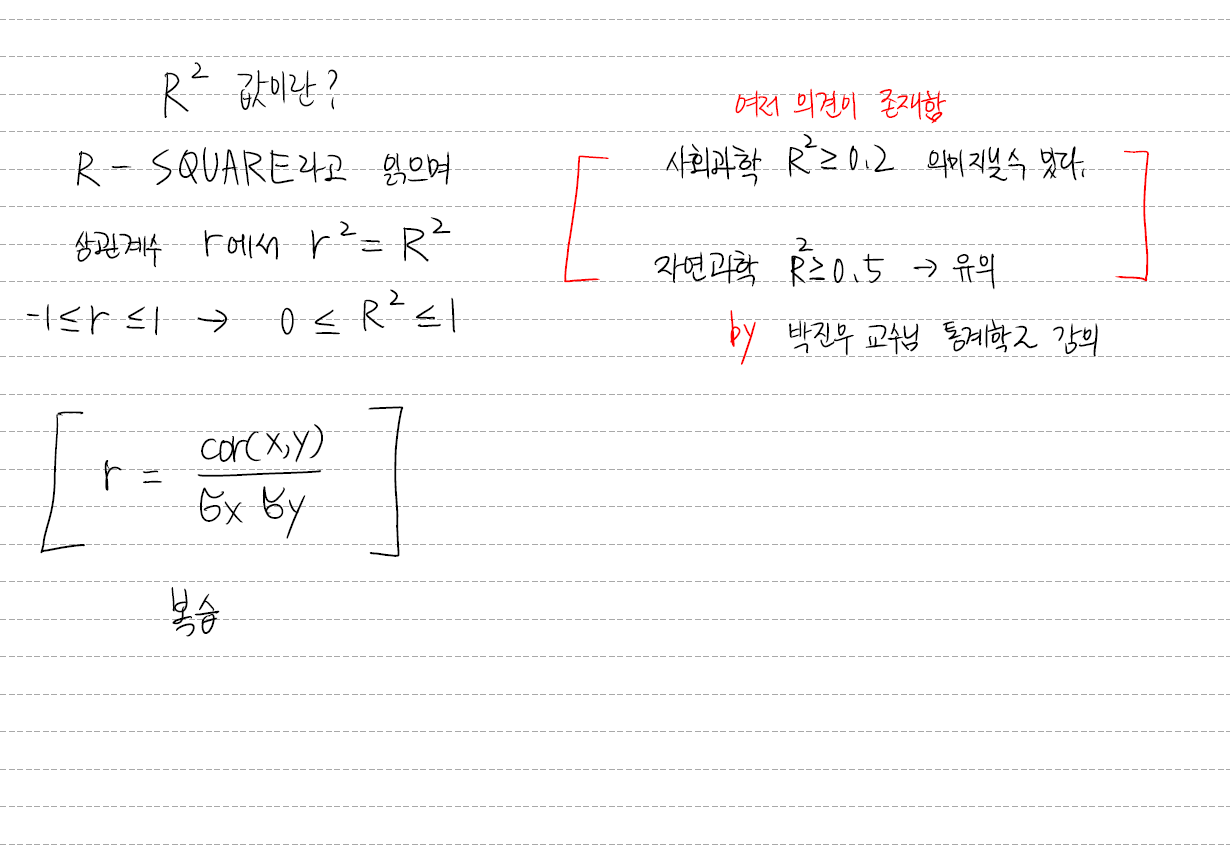 R² 값이란?
R - SQUARE라고 읽으며
상관계수 r에서 r² = R²
-1≤r≤1 → 0 ≤ R² ≤1
r = cor(x,y) / σx σy
복습
여러 의견이 존재함
사회과학 R²≥0.2 의미지닐수 있다.
자연과학 R²≥0.5 → 유의
by 박진우 교수님 통계학고 강의